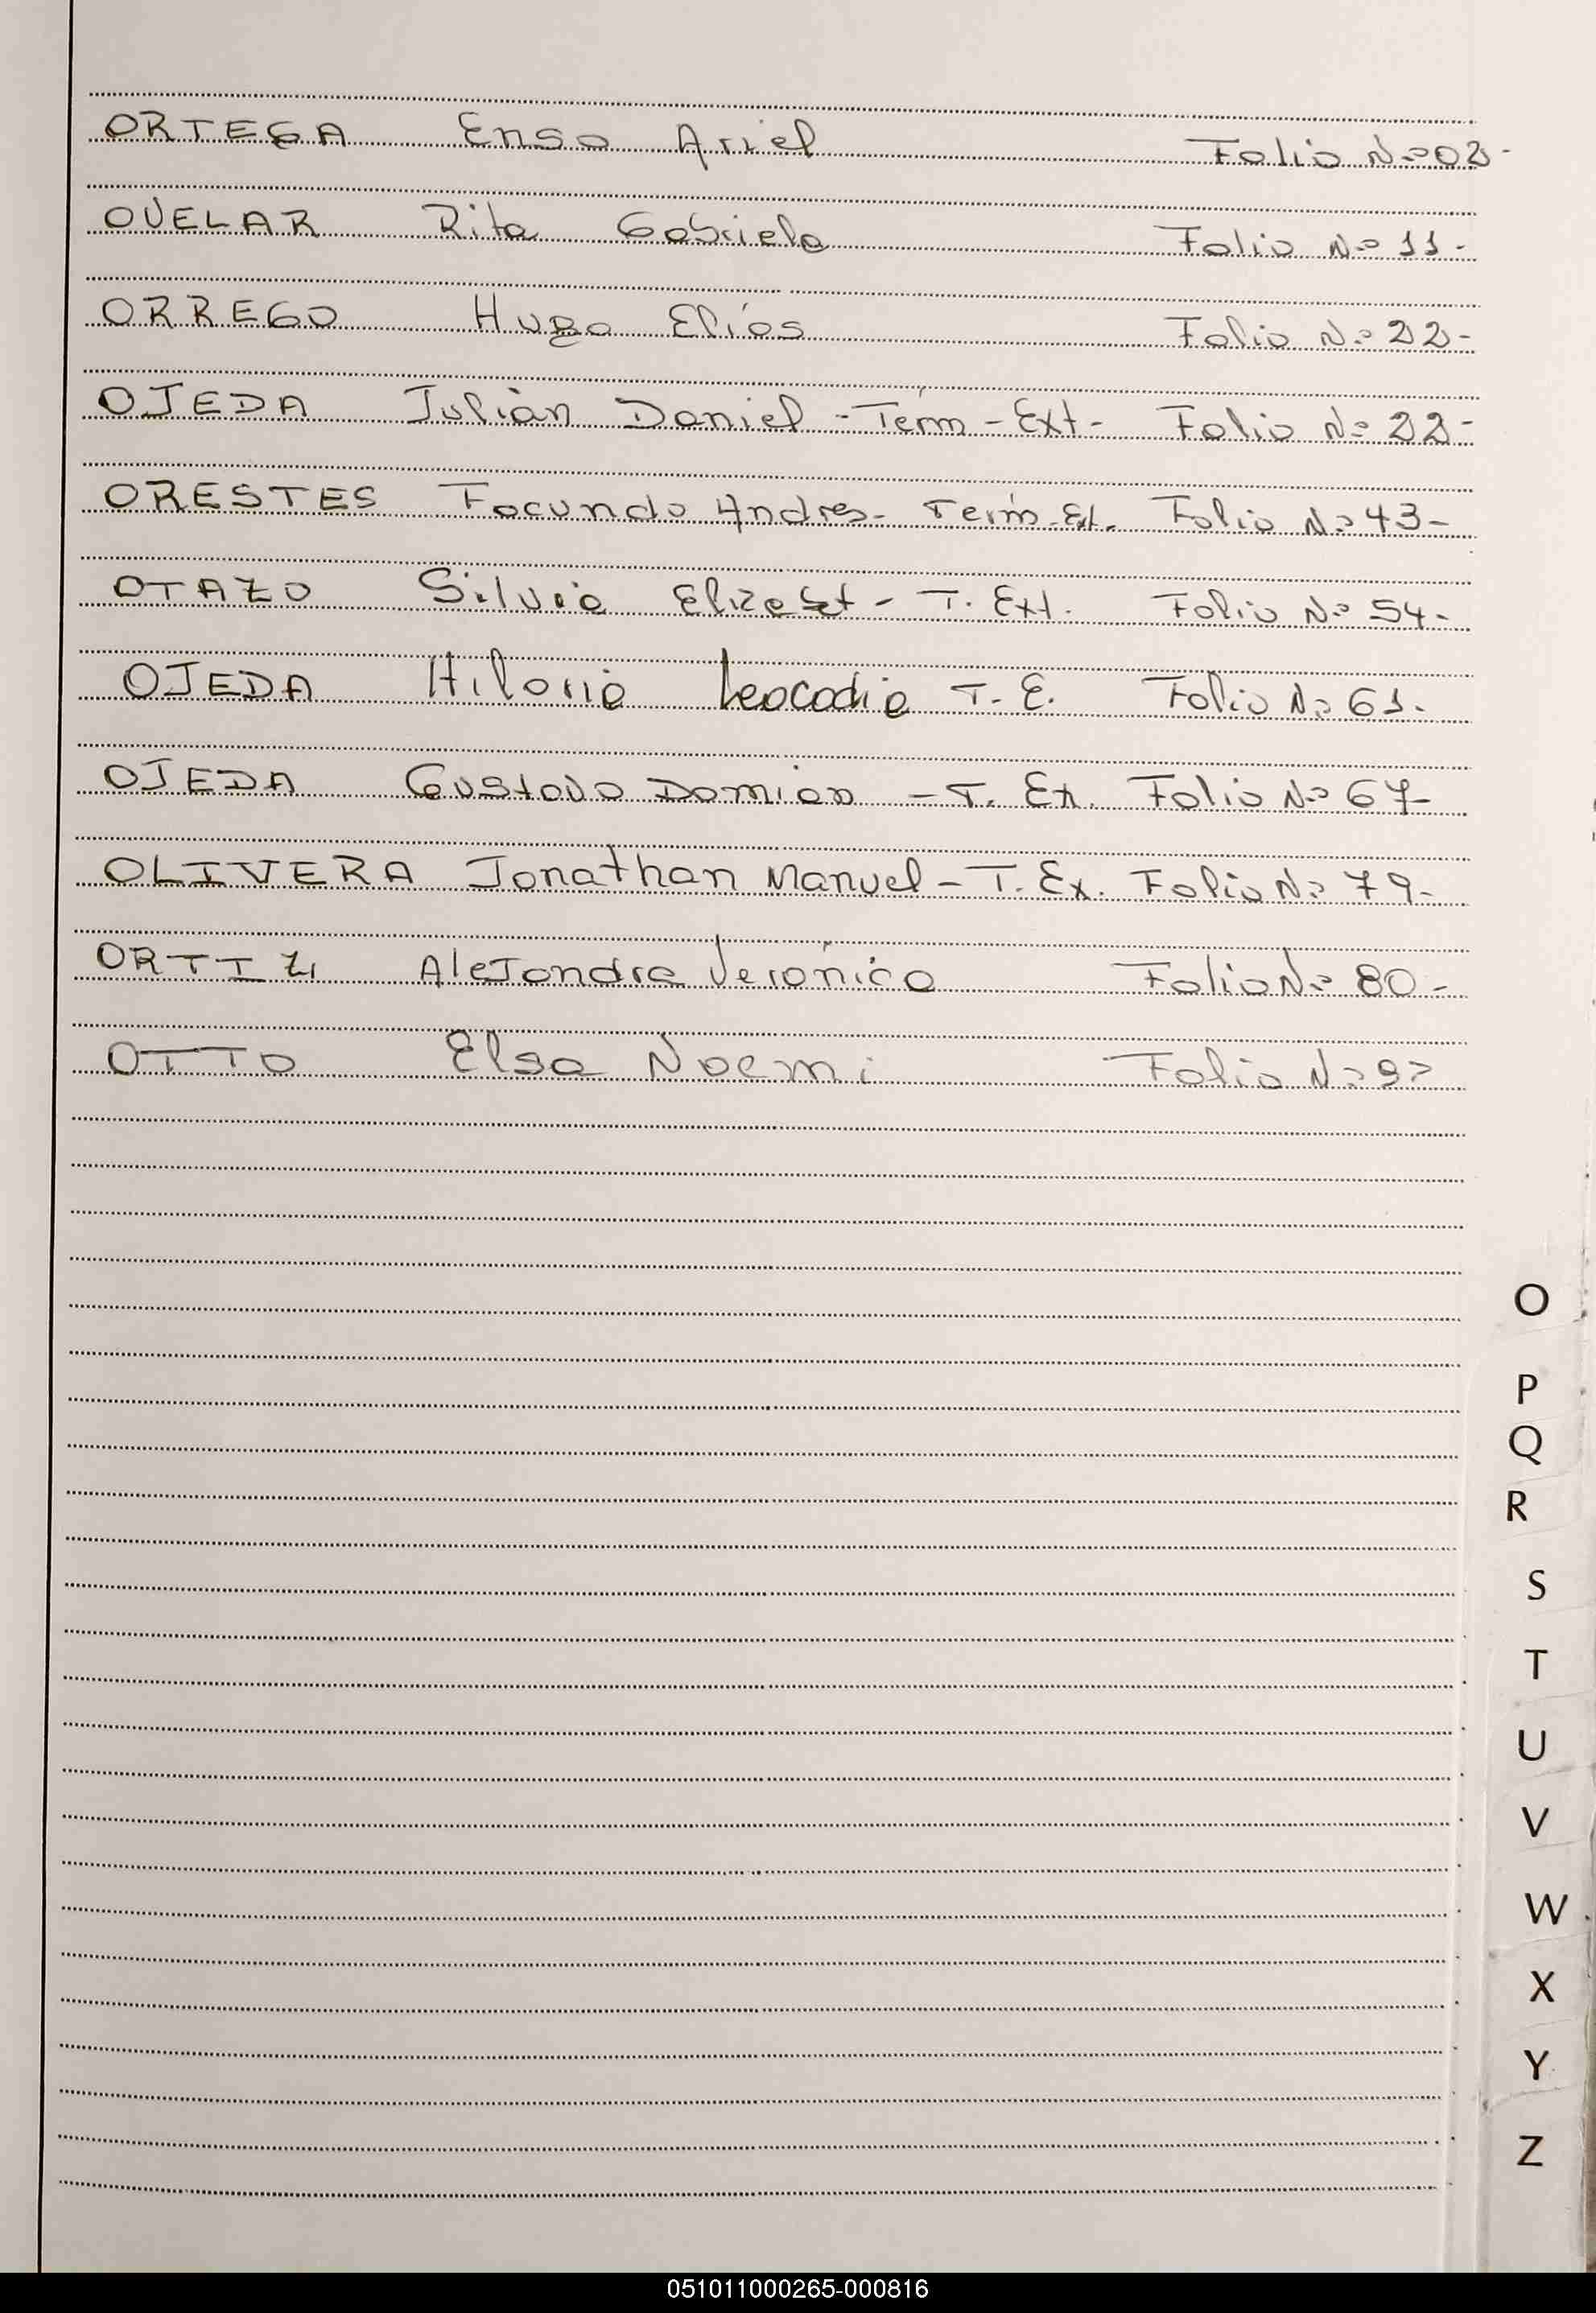 ORTEGA Enso Ariel Folio N° 02-
OVELAR Rita Gabriela Folio N° 11-
ORREGO Hugo Elías Folio N° 22-
OJEDA Julián Daniel - Térm - Ext- Folio N° 22-
ORESTES Facundo Andres- Térm-Ext. Folio N° 43-
OTAZO Silvia Elizabet - T. Ext. Folio N° 54-
OJEDA Hilaria Leocadia T. E. Folio N° 61.
OJEDA Gustavo Damián - T. Ex. Folio N° 67-
OLIVERA Jonathan Manuel - T. Ex. Folio N° 79-
ORTIZ AleJandra Verónica Folio N° 80-
OTTO Elsa Noemi Folio N° 97
O
P
Q
R
S
T
U
V
W
X
Y
Z
051011000265-000816